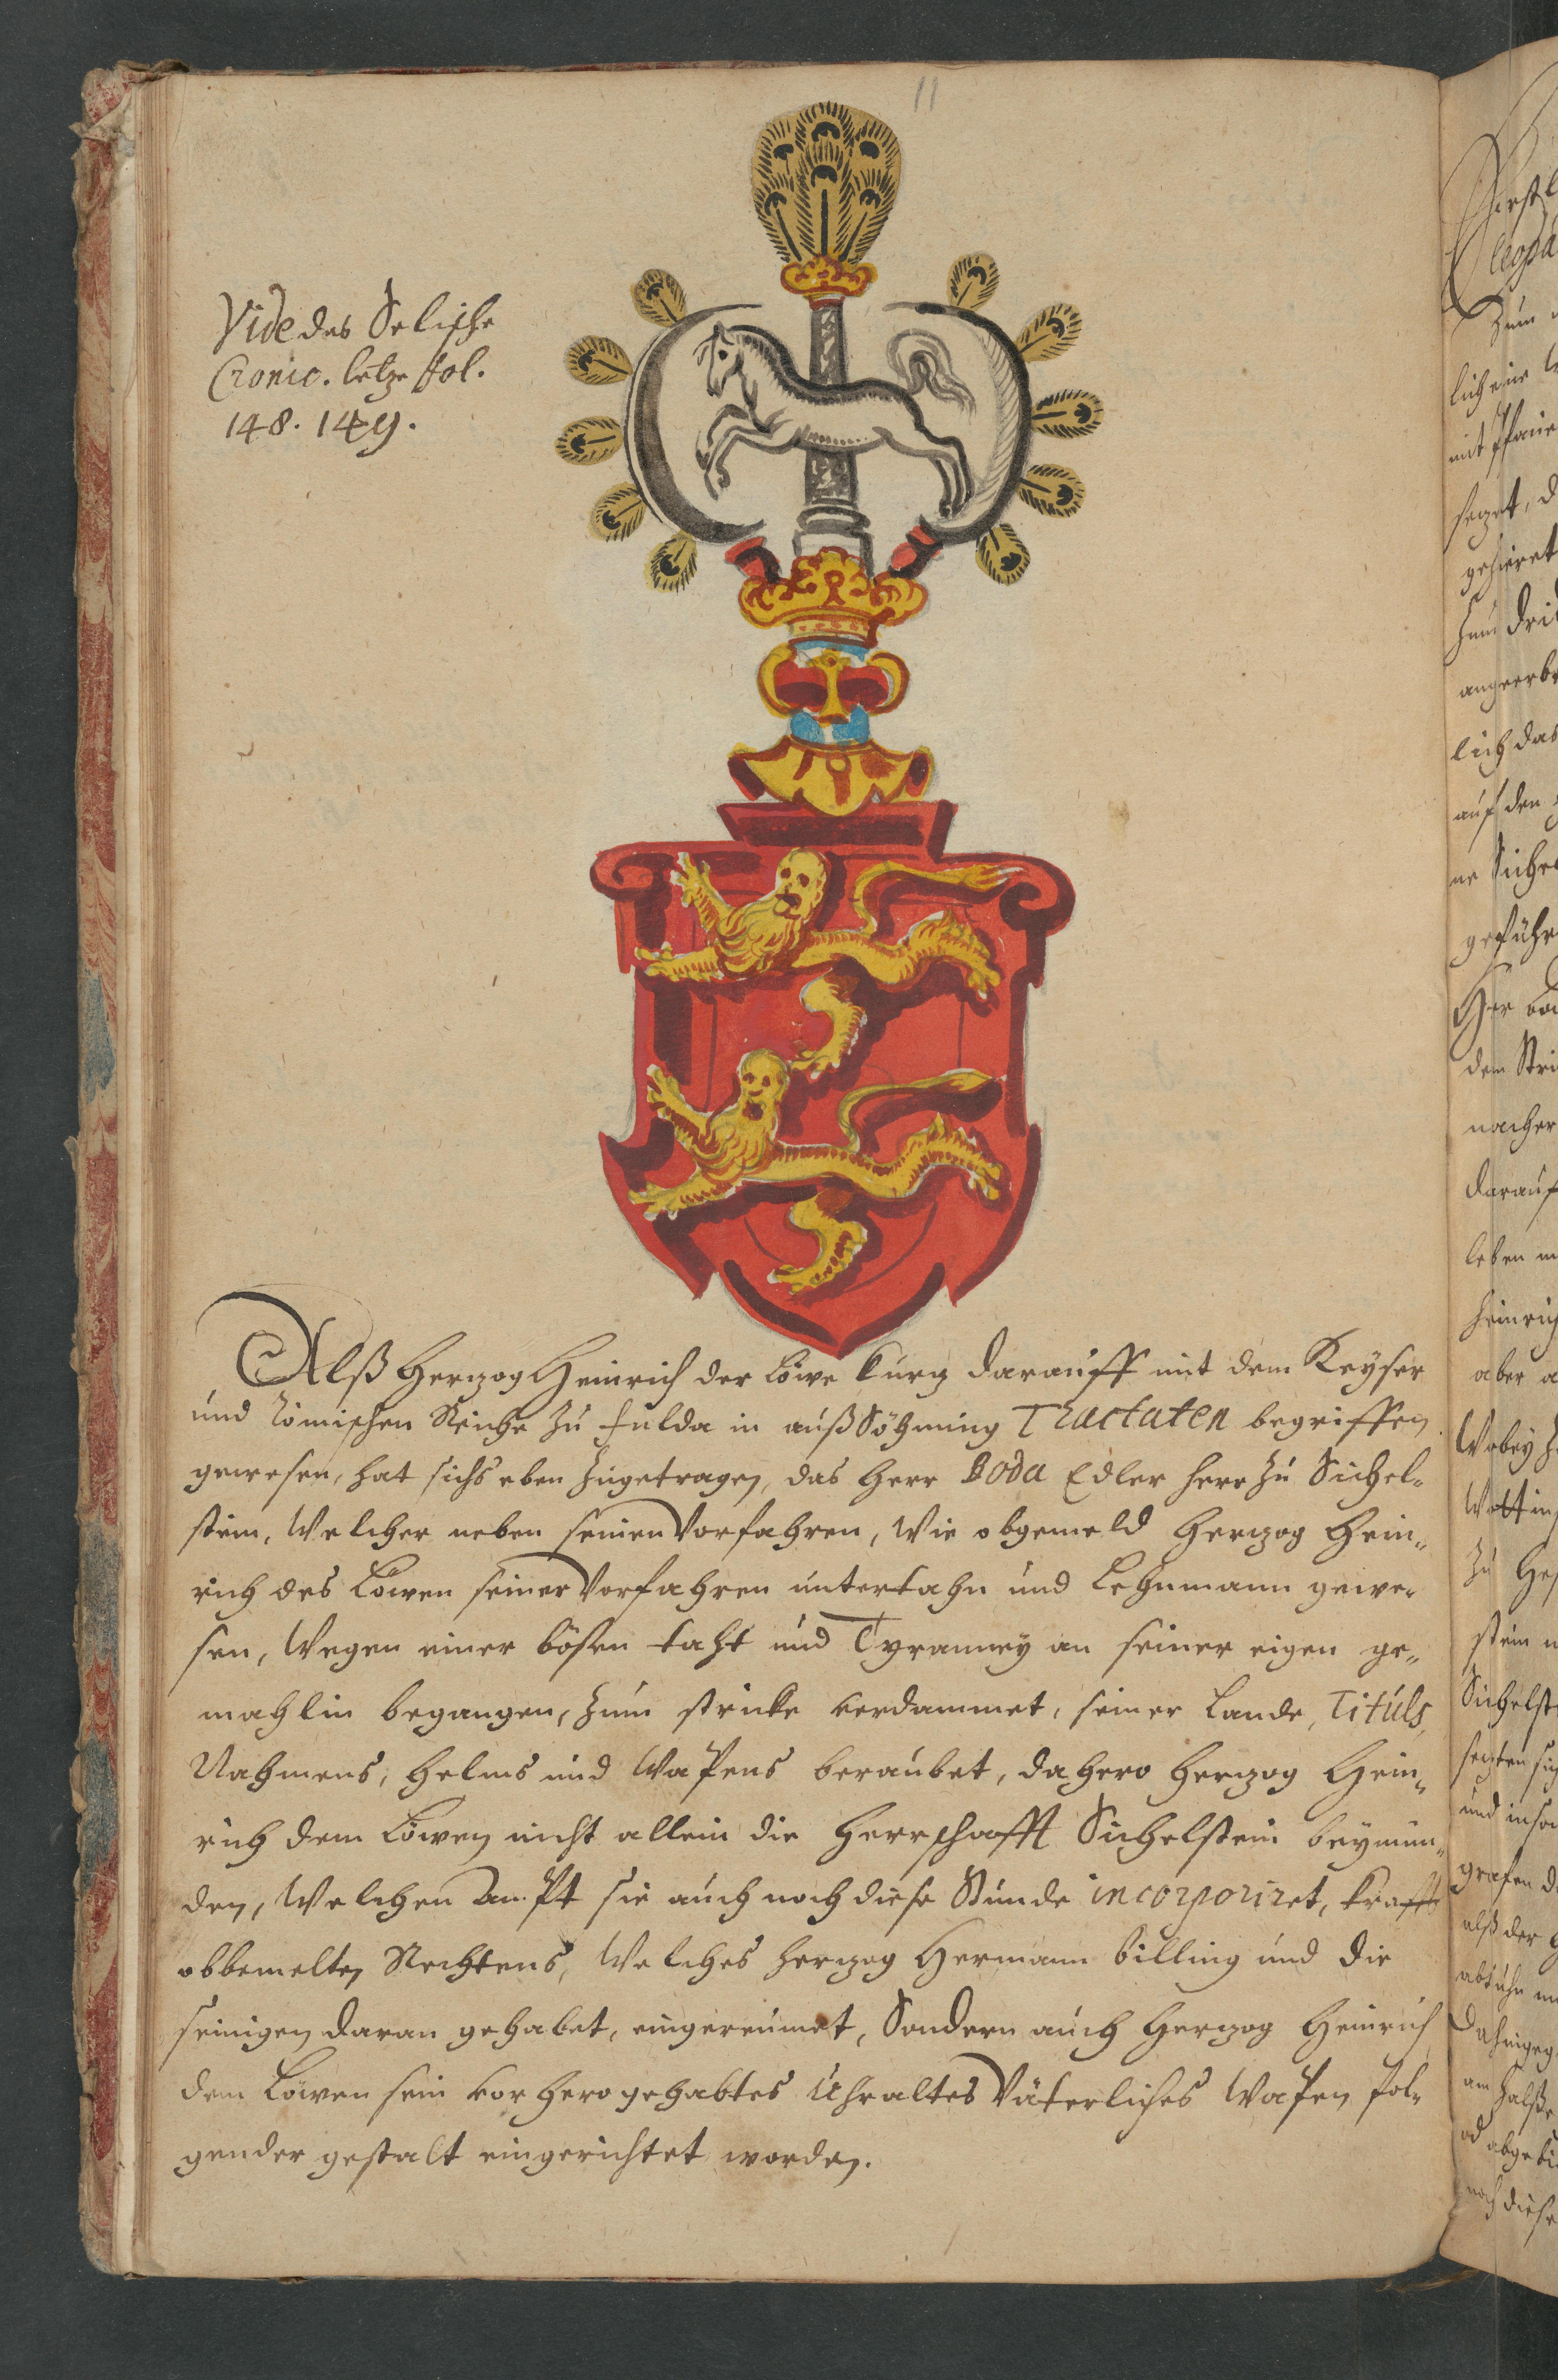 11
Vide des Selische
Cronic. letze fol.
148. 149.
Alß Herzog Heinrich der Löwe kurz darauff mit dem Keyser
und Römischen Reiche zu Fulda in außSöhnung Tractaten begriffen
gewesen, hat sichs eben zugetragen, das Herr Boda Edler Herr zu Sichel-
stein, Welcher neben seinen Vorfahren, Wie obgemeld Herzog Hein-
rich des Löwen seiner Vorfahren untertahn und Lehnmann gewe-
sen, Wegen einer bösen taht und Tyranney an seiner eigen ge-
mahlin begangen, zum stricke verdammet, seiner Lande, Tituls,
Nahmens, Helms und Wapens beraubet, dahero Herzog Hein-
rich dem Löwen nicht allein die Herrschafft Sichelstein bey
den, Welchen Ampt sie auch noch diese Stunde incorporiret, krafft
obbemelten Rechtens, Welches Herzog Hermann Billing und die
seinigen daran gehabet, eingereümet, Sondern auch Herzog Heinrich
dem Löwen sein vorhero gehabtes Uhraltes Väterliches Wapen fol-
gender gestalt eingerichtet worden.